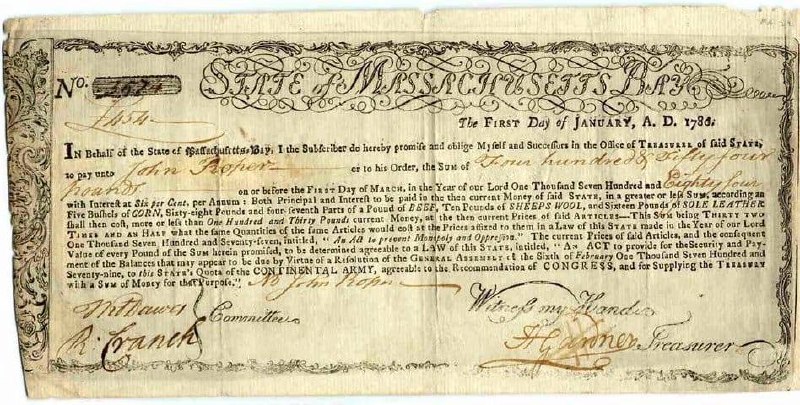 No. 2674
STATE of MASSACHUSETTS BAY
£454
The FIRST Day of JANUARY, A. D. 1780.
IN Behalf of the State of Massachusetts-Bay, I the Subscriber do hereby promise and oblige Myself and Successors in the Office of TREASURER of said STATE,
to pay unto John Roper or to his Order, the SUM of Four hundred & fifty four
pounds on or before the FIRST Day of MARCH, in the Year of our Lord One Thousand Seven Hundred and Eighty four
with Interest at Six per Cent. per Annum: Both Principal and Interest to be paid in the then current Money of said STATE, in a greater or less SUM, according as
Five Bushels of CORN, Sixty-eight Pounds and four-seventh Parts of a Pound of BEEF, Ten Pounds of SHEEPS WOOL, and Sixteen Pounds of SOLE LEATHER
shall then cost, more or less than One Hundred and Thirty Pounds current Money, at the then current Prices of said ARTICLES—This SUM being THIRTY TWO
TIMES AND AN HALF what the same Quantities of the same Articles would cost at the Prices affixed to them in a LAW of this STATE made in the Year of our Lord
One Thousand Seven Hundred and Seventy-seven, intitled, "An Act to prevent Monopoly and Oppression." The current Prices of said Articles, and the consequent
Value of every Pound of the SUM herein promised, to be determined agreeable to a LAW of this STATE, intitled, "An ACT to provide for the Security and Pay-
ment of the Balances that may appear to be due by Virtue of a Resolution of the GENERAL ASSEMBLY of the Sixth of February One Thousand Seven Hundred and
Seventy-nine, to this STATE'S Quota of the CONTINENTAL ARMY, agreeable to the Recommendation of CONGRESS, and for Supplying the TREASURY
with a SUM of Money for that Purpose." No John Roper
Witness my Hand
Committee
R. Cranch
H Gardner Treasurer